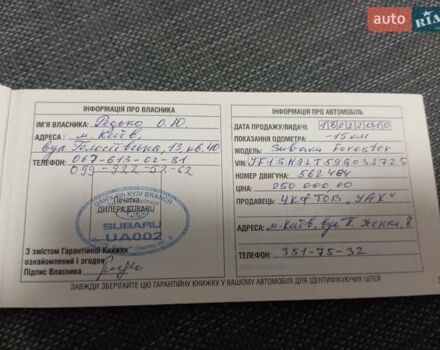 auto RIA
ІНФОРМАЦІЯ ПРО ВЛАСНИКА
ІМ'Я ВЛАСНИКА: Редько О.Ю.
АДРЕСА: м. Київ,
вул Голосіївська, 13, кв. 40
ТЕЛЕФОН: 067-613-02-81
099-922-52-62
Печатка
ДИЛЕРА SUBARU
KYIV BRANCH
SUBARU
UA002
З змістом Гарантійної Книжки
ознайомлений і згоден
Підпис Власника
ІНФОРМАЦІЯ ПРО АВТОМОБІЛЬ
ДАТА ПРОДАЖУ/ВИДАЧІ: 18022010
ПОКАЗАННЯ ОДОМЕТРА: -15 км
МОДЕЛЬ: Subaru Forester
VIN: JF1SH9LT59G033725
НОМЕР ДВИГУНА: 562464
ЦІНА: 250 000,00
ПРОДАВЕЦЬ: УКФ ТОВ "УАХ"
АДРЕСА: м. Київ, вул.
ТЕЛЕФОН: 351-75-32
ЗАВЖДИ ЗБЕРІГАЙТЕ ЦЮ ГАРАНТІЙНУ КНИЖКУ У ВАШОМУ АВТОМОБІЛІ ДЛЯ ІДЕНТИФІКУЮЧИХ ЦІЛЕЙ